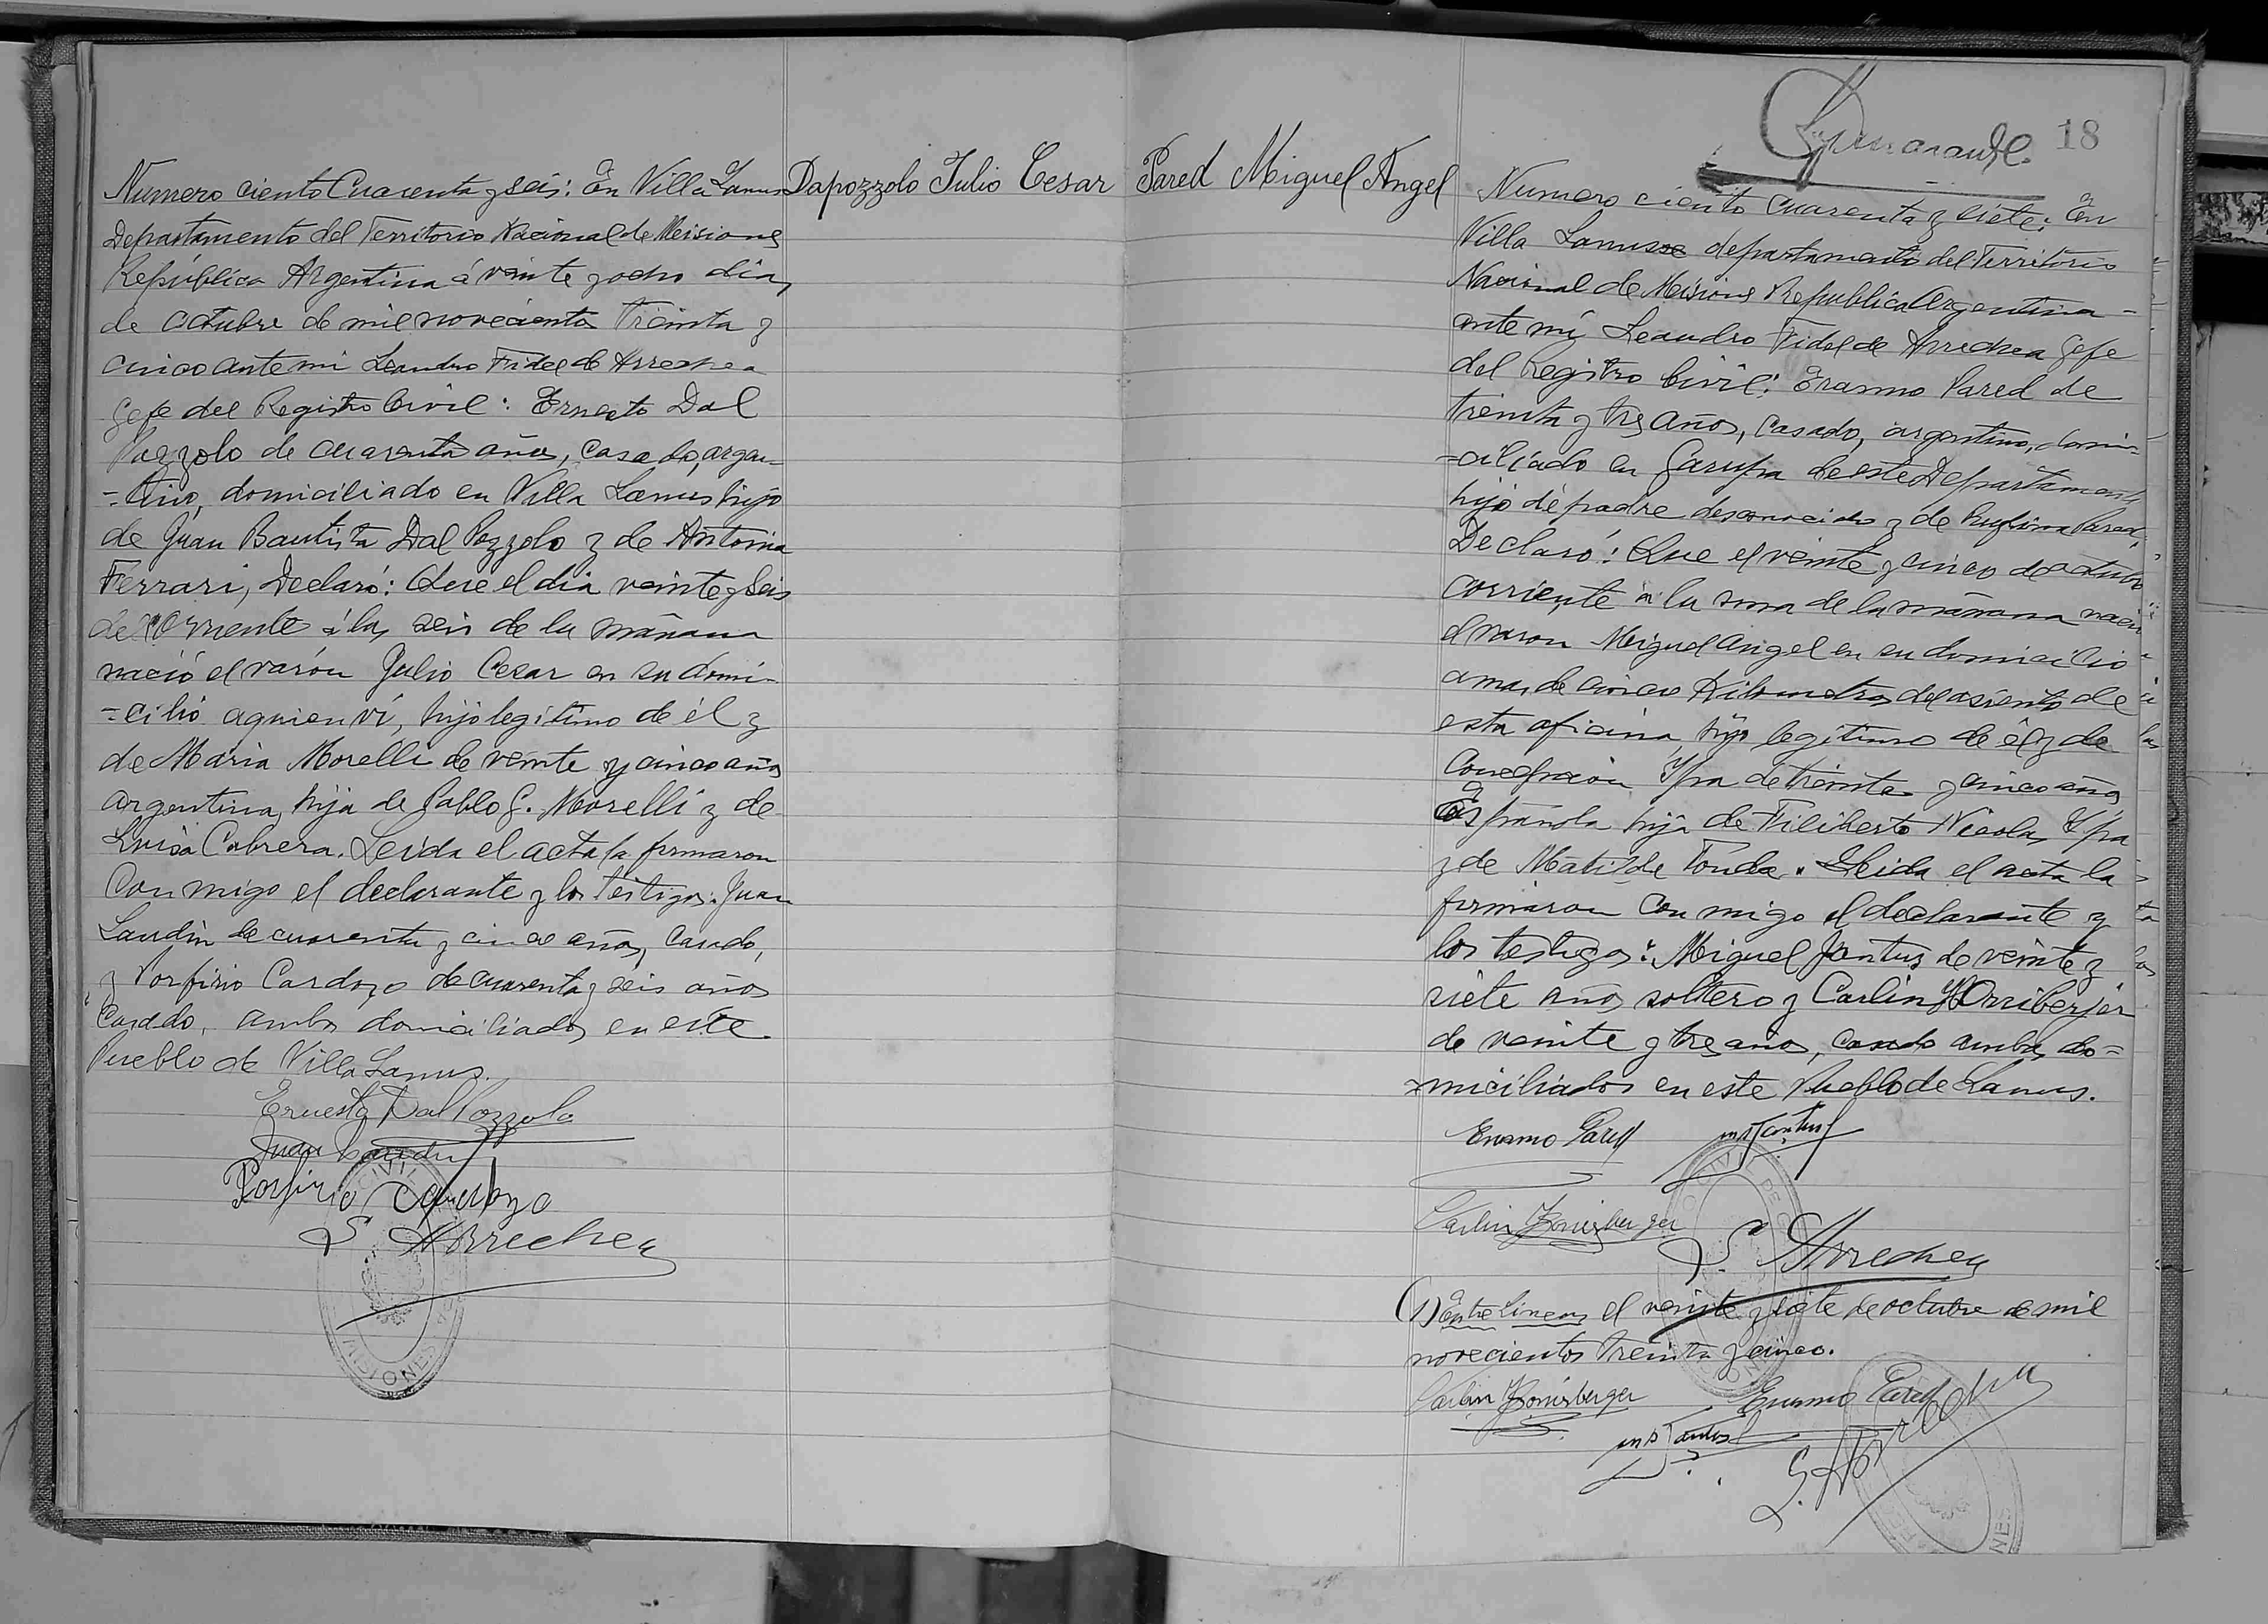 Numero ciento Cuarenta y seis: En Villa Lanus
Departamento del Territorio Nacional de Misiones
República Argentina á veinte y ocho dias
de octubre de mil novecientos treinta y
cinco ante mi Leandro Fidel de Arrechea
Gefe del Registro Civil: Ernesto Dal
Pozzolo de cuarenta años, casado, argen-
=tino, domiciliado en Villa Lanus hijo
de Juan Bautista Dal Pozzolo y de Antonia
Ferrari, Declaró: Que el dia veinte y seis
de corriente á las seis de la mañana
nació el varón Julio Cesar en su domi-
=cilio a quien ví, hijo legítimo de él y
de Maria Morelli de veinte y cinco años
argentina, hija de Pablo G. Morelli y de
Luisa Cabrera. Leida el acta la firmaron
Con migo el declarante y los testigos: Juan
Landin de cuarenta y cinco años, casado,
y Porfirio Cardozo de cuarenta y seis años
casado, ambos domiciliados en este
Pueblo de Villa Lanus.
Ernesto Dal Pozzolo
Juan Landin
Porfirio Cardozo
L Arrechea
CIVIL
MISIONES
Dapozzolo Julio Cesar
Pared Miguel Angel
18
Numero ciento cuarenta y siete: En
Villa Lanusse departamento del Territorio
Nacional de Misiones Republica Argentina -
ante mí Leandro Fidel de Arrechea Gefe
del Registro Civil: Erasmo Pared de
treinta y tres años, casado, argentino, domi-
=ciliado en Garupa de este Departamento
hijo de padre desconocido y de Rufina Pared,
Declaró: Que el veinte y cinco de octubre
corriente á la una de la mañana nació
el varon Miguel Angel en su domicilio
a mas de cinco Kilometros del asiento de
esta oficina, hijo legitimo de él y de
Concepcion Ypa de treinta y cinco años
Española hija de Filiberto Nicolas Ypa
y de Matilde Tonda. Leida el acta la
firmaron Con migo el declarante y
los testigos: Miguel Jantus de veinte y
siete años soltero y Carlin
de veinte y tres años, casado ambos do=
=miciliados en este Pueblo de Lanus.
Erasmo Pared
Carlin
L. Arrechea
(1) Entre lineas el veinte y siete de octubre de mil
novecientos treinta y cinco.
Carlin
Erasmo Pared
L. Arrechea